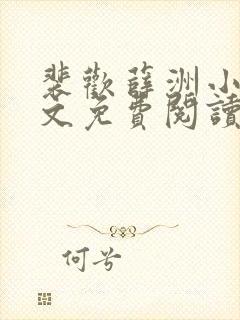 裴歡薛洲小
文免費閱讀
何兮